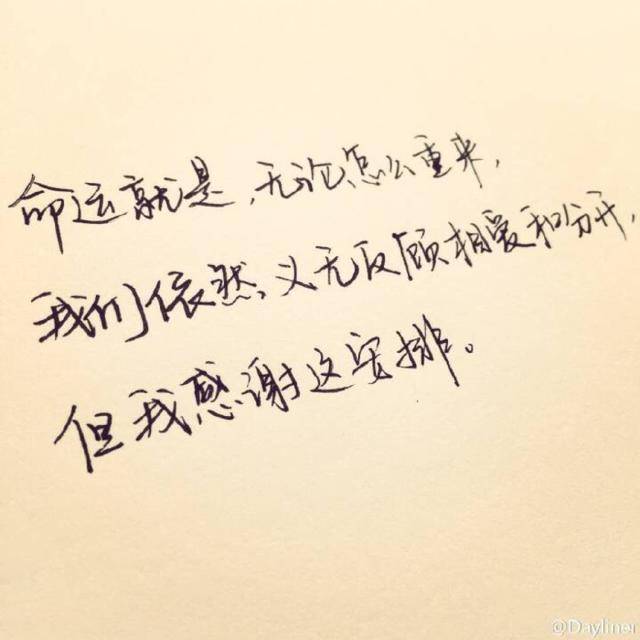 命运就是,无论怎么重来,
我们依然义无反顾相爱和分开,
但我感谢这安排。
@Dayliner